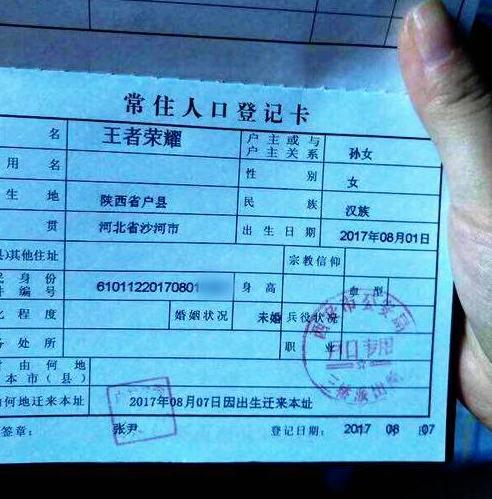 常住人口登记卡
名 王者荣耀 户主或与户主关系 孙女
用名 性别 女
生地 陕西省户县 民族 汉族
贯 河北省沙河市 出生日期 2017年08月01日
县)其他住址 宗教信仰
民身份件编号 61011220170801 身高 血型
化程度 婚姻状况 未婚 兵役状况
务处所 职业
时由何地本市(县)
何地迁来本址 2017年08月07日因出生迁来本址
签章: 张尹 登记日期: 2017 08 07
西安市公安局
户口专用
三桥派出所